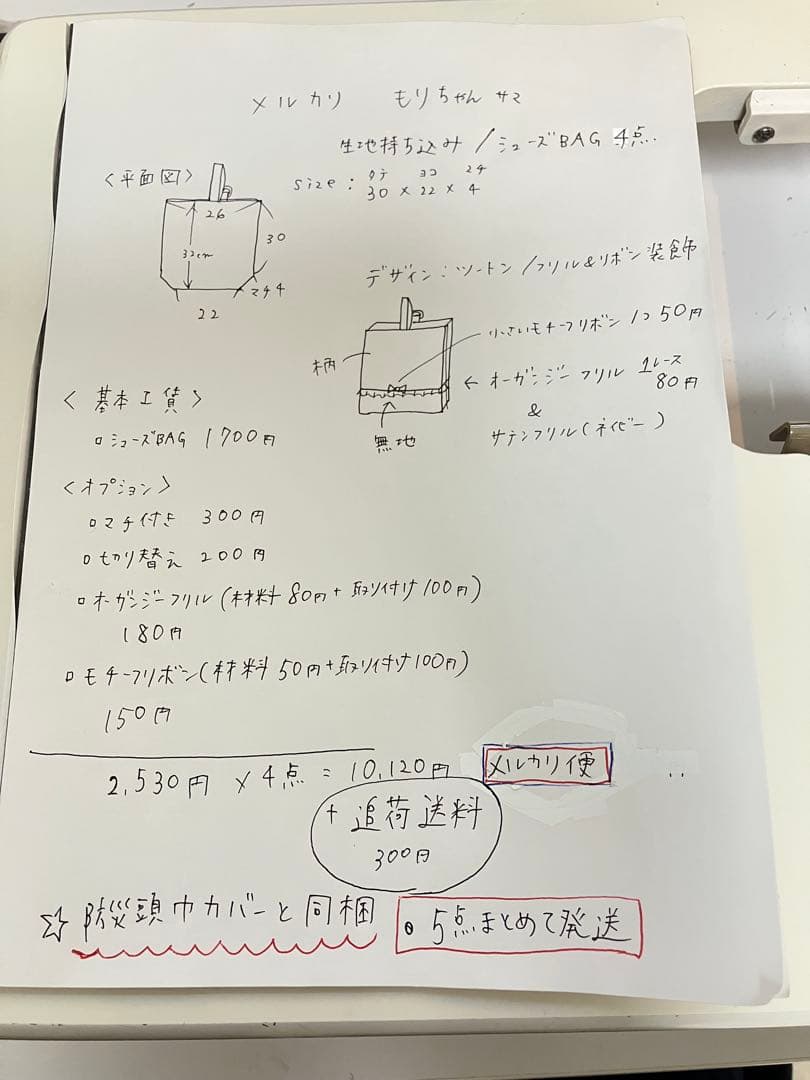 メルカリ もりちゃん サマ
生地持ち込み / シューズBAG 4点
〈平面図〉
size : 30 × 22 × 4
タテ ヨコ マチ
26
33cm
30
マチ4
22
デザイン : ツートン / フリル&リボン 装飾
小さいモチーフリボン 1コ 50円
柄
← オーガンジーフリル 1レース 80円
&
サテンフリル(ネイビー)
無地
〈 基本工賃 〉
シューズBAG 1700円
〈オプション〉
マチ付き 300円
切り替え 200円
オーガンジーフリル (材料80円+取り付け100円)
180円
モチーフリボン(材料50円+取り付け100円)
150円
2,530円 × 4点 = 10,120円 メルカリ便
+ 追荷送料
300円
☆ 防災頭巾カバーと同梱 • 5点まとめて発送